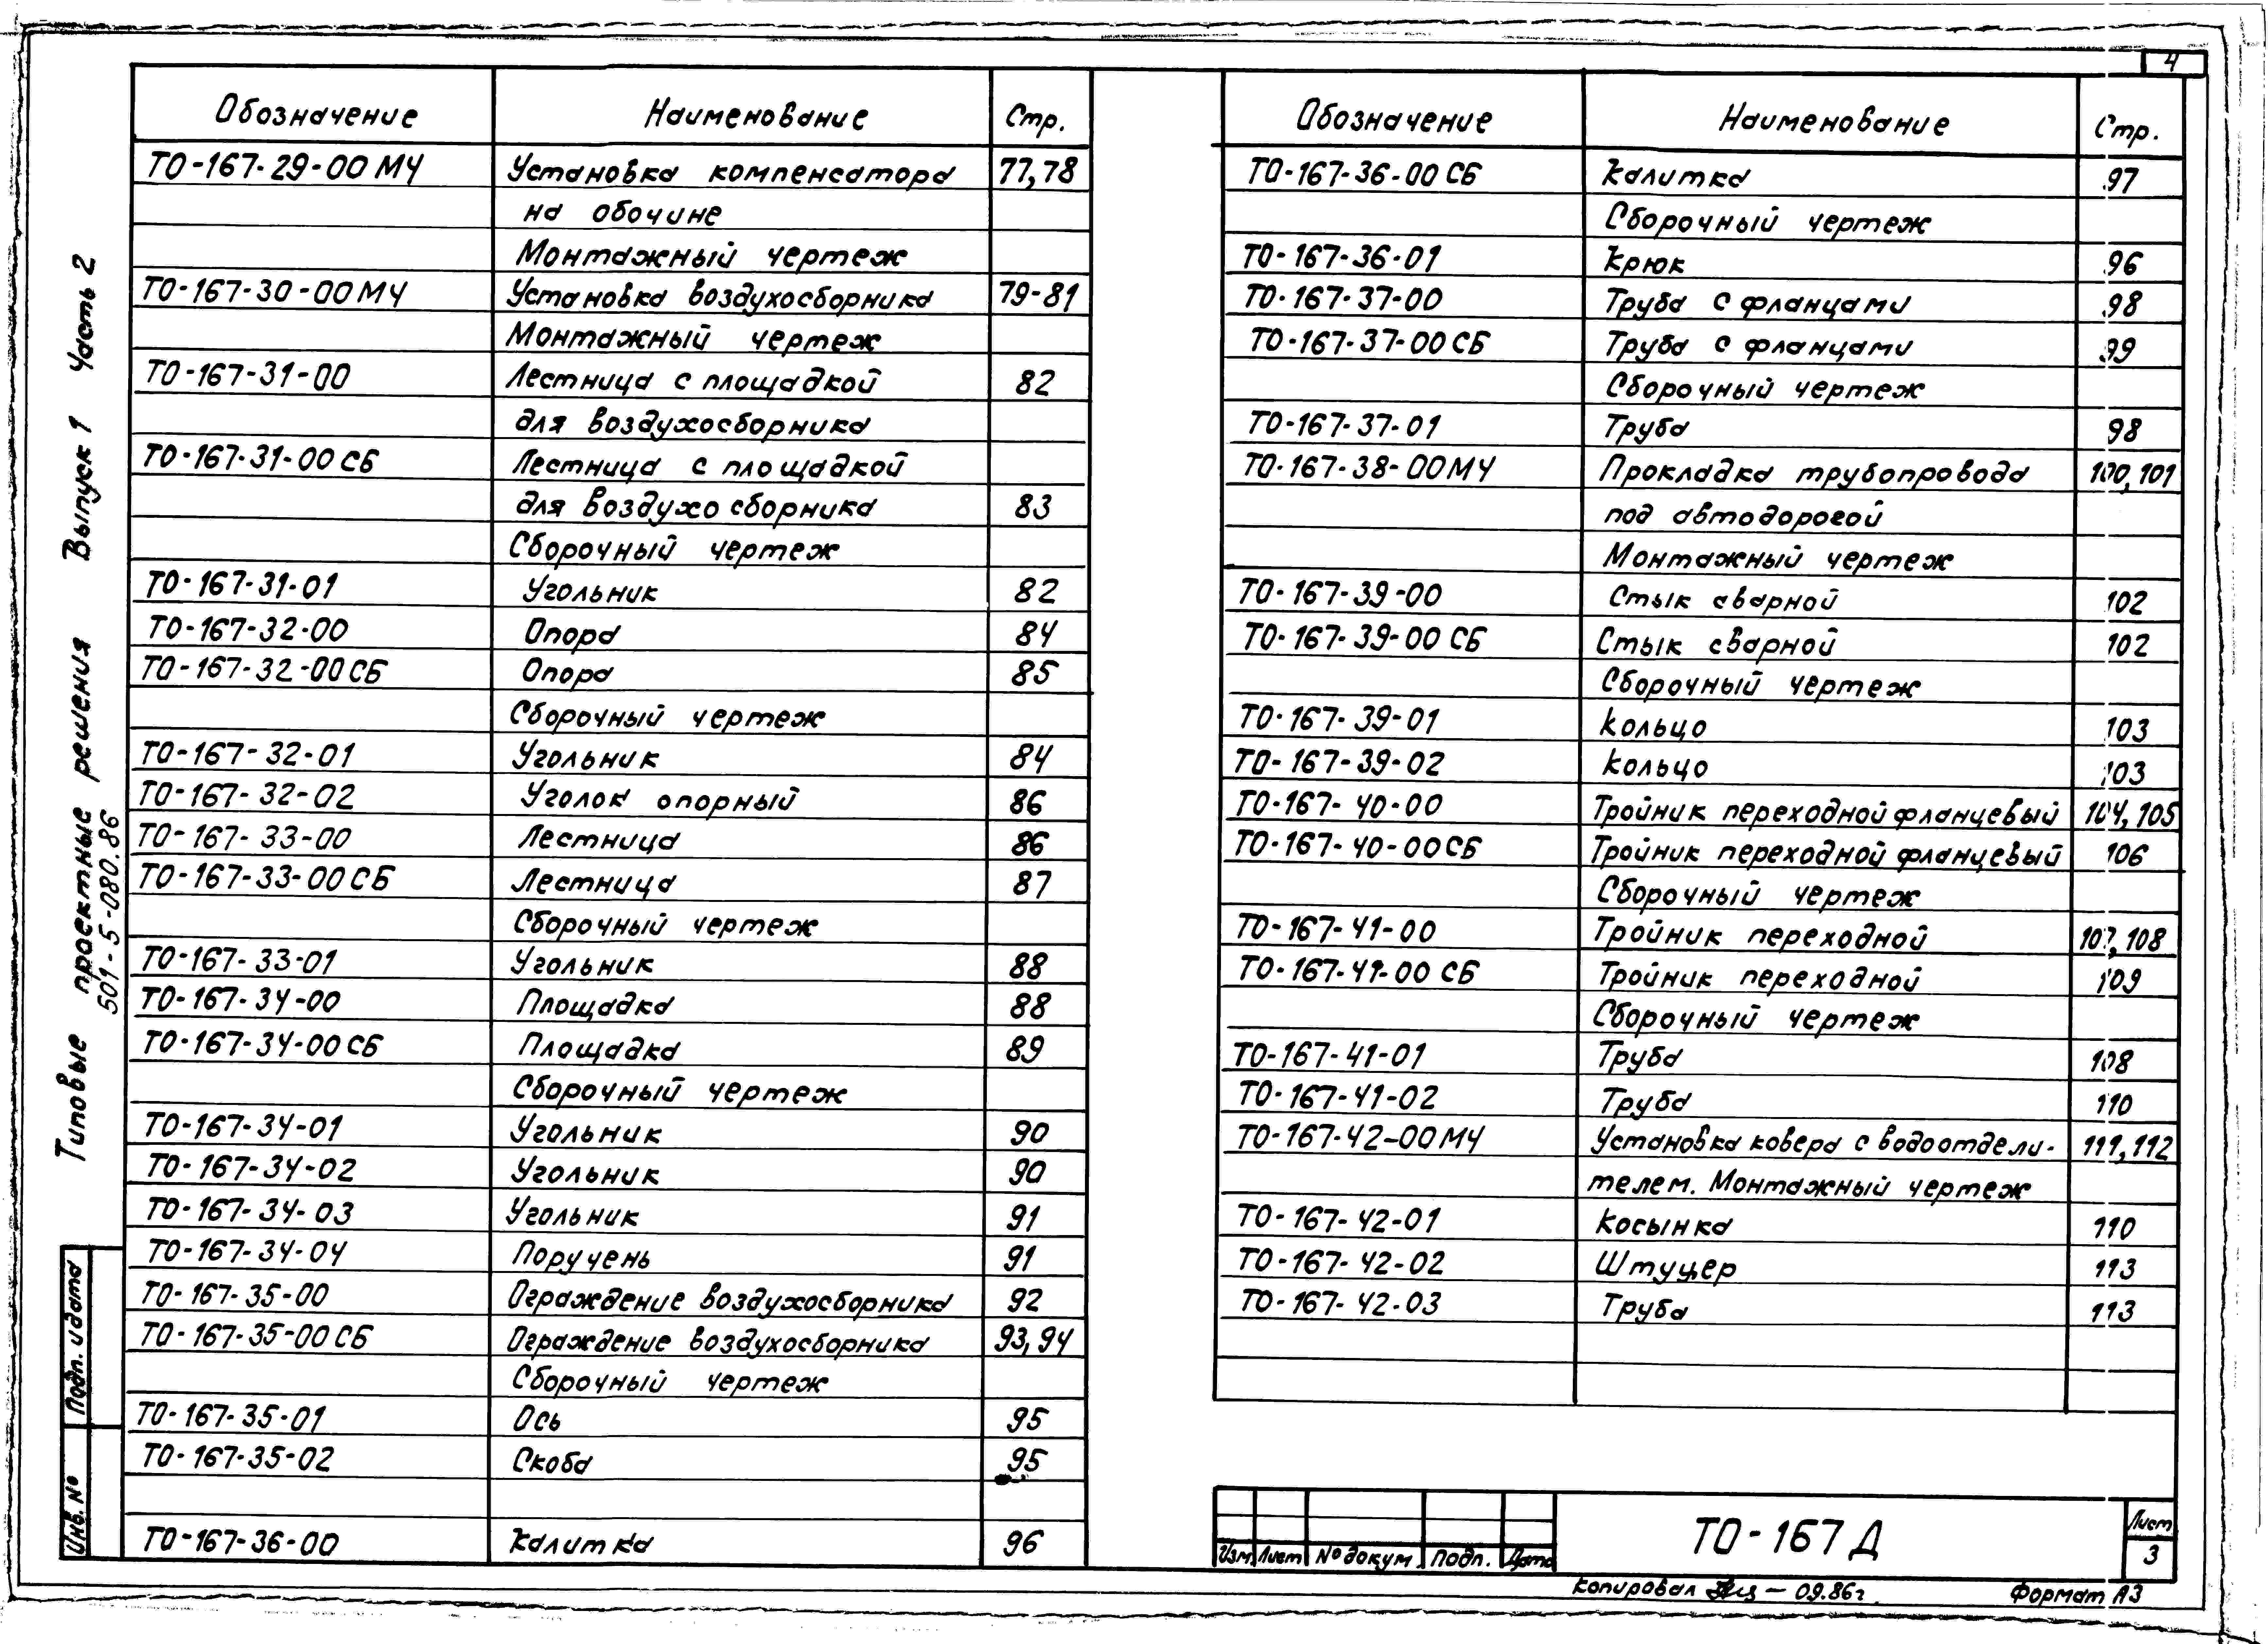 4
Обозначение Наименование Стр.
ТО-167-29-00 МЧ Установка компенсатора 77,78
на обочине
Монтажный чертеж
ТО-167-30-00 МЧ Установка воздухосборника 79-81
Монтажный чертеж
ТО-167-31-00 Лестница с площадкой 82
для воздухосборника
ТО-167-31-00 СБ Лестница с площадкой
для воздухосборника 83
Сборочный чертеж
ТО-167-31-01 Угольник 82
ТО-167-32-00 Опора 84
ТО-167-32-00 СБ Опора 85
Сборочный чертеж
ТО-167-32-01 Угольник 84
ТО-167-32-02 Уголок опорный 86
ТО-167-33-00 Лестница 86
ТО-167-33-00 СБ Лестница 87
Сборочный чертеж
ТО-167-33-01 Угольник 88
ТО-167-34-00 Площадка 88
ТО-167-34-00 СБ Площадка 89
Сборочный чертеж
ТО-167-34-01 Угольник 90
ТО-167-34-02 Угольник 90
ТО-167-34-03 Угольник 91
ТО-167-34-04 Поручень 91
ТО-167-35-00 Ограждение воздухосборника 92
ТО-167-35-00 СБ Ограждение воздухосборника 93,94
Сборочный чертеж
ТО-167-35-01 Ось 95
ТО-167-35-02 Скоба 95
ТО-167-36-00 Калитка 96
Обозначение Наименование Стр.
ТО-167-36-00 СБ Калитка 97
Сборочный чертеж
ТО-167-36-01 Крюк 96
ТО-167-37-00 Труба с фланцами 98
ТО-167-37-00 СБ Труба с фланцами 99
Сборочный чертеж
ТО-167-37-01 Труба 98
ТО-167-38-00 МЧ Прокладка трубопровода 100,101
под автодорогой
Монтажный чертеж
ТО-167-39-00 Стык сварной 102
ТО-167-39-00 СБ Стык сварной 102
Сборочный чертеж
ТО-167-39-01 Кольцо 103
ТО-167-39-02 Кольцо 103
ТО-167-40-00 Тройник переходной фланцевый 104,105
ТО-167-40-00 СБ Тройник переходной фланцевый 106
Сборочный чертеж
ТО-167-41-00 Тройник переходной 107,108
ТО-167-41-00 СБ Тройник переходной 109
Сборочный чертеж
ТО-167-41-01 Труба 108
ТО-167-41-02 Труба 110
ТО-167-42-00 МЧ Установка ковера с водоотдели- 111,112
телем. Монтажный чертеж
ТО-167-42-01 Косынка 110
ТО-167-42-02 Штуцер 113
ТО-167-42-03 Труба 113
Типовые проектные решения Выпуск 1 Часть 2
501-5-080.86
Подп. и дата
Инв. №
Изм. Лист № докум. Подп. Дата
ТО-167 Д
Лист
3
Копировал — 09.86г.
Формат А3